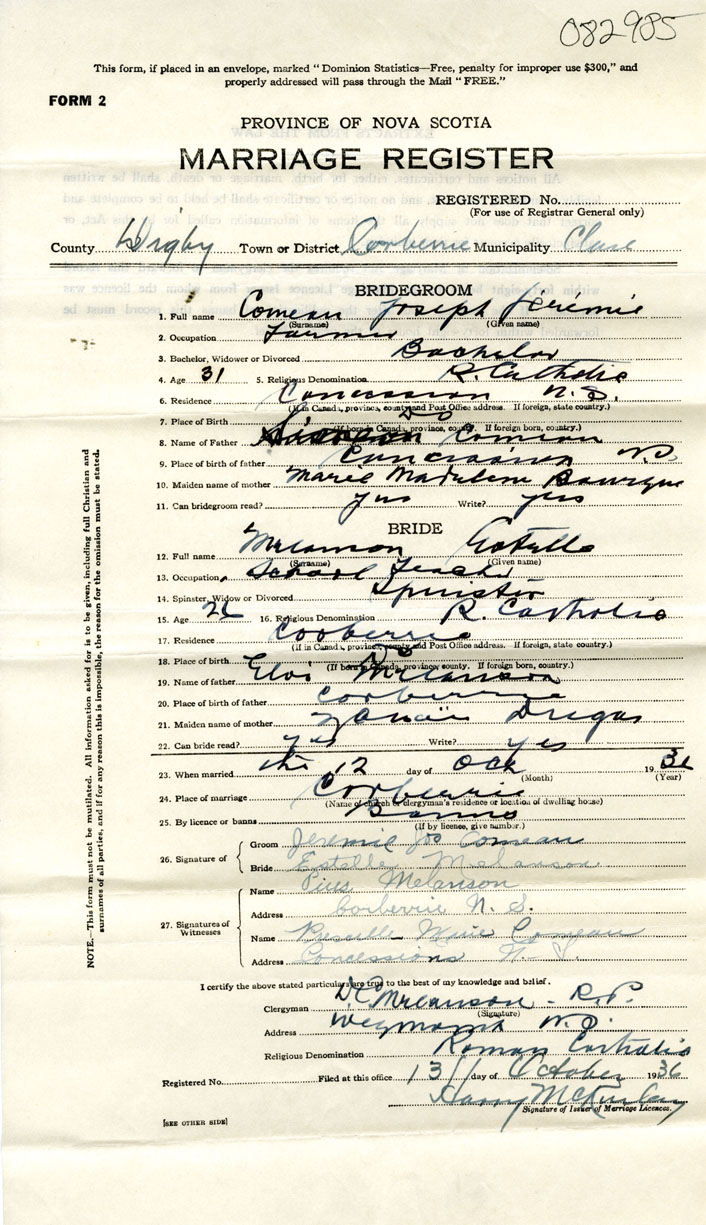 082985
This form, if placed in an envelope, marked "Dominion Statistics—Free, penalty for improper use $300," and
properly addressed will pass through the Mail "FREE."
FORM 2
PROVINCE OF NOVA SCOTIA
MARRIAGE REGISTER
REGISTERED No.
(For use of Registrar General only)
County Digby Town or District Corberrie Municipality Clare
BRIDEGROOM
1. Full name Comeau Joseph Jérémie
(Surname) (Given name)
2. Occupation Farmer
3. Bachelor, Widower or Divorced Bachelor
4. Age 31 5. Religious Denomination R. Catholic
6. Residence Concession N.S.
(If in Canada, province, county and Post Office address. If foreign, state country.)
7. Place of Birth Do
(If born in Canada, province, county. If foreign born, country.)
8. Name of Father Comeau
9. Place of birth of father Concession N.S.
10. Maiden name of mother Marie Madeleine Bourque
11. Can bridegroom read? yes Write? yes
BRIDE
12. Full name Melanson Estelle
(Surname) (Given name)
13. Occupation School Teacher
14. Spinster, Widow or Divorced Spinster
15. Age 26 16. Religious Denomination R. Catholic
17. Residence Corberrie
(If in Canada, province, county and Post Office address. If foreign, state country.)
18. Place of birth Do
(If born in Canada, province, county. If foreign born, country.)
19. Name of father Eloi Melanson
20. Place of birth of father Corberrie
21. Maiden name of mother Dugas
22. Can bride read? yes Write? yes
23. When married the 12 day of Oct 1936
(Month) (Year)
24. Place of marriage Corberrie
(Name of church or clergyman's residence or location of dwelling house)
25. By licence or banns Banns
(If by licence, give number.)
26. Signature of Groom Jeremie Jos Comeau
Bride Estelle Melanson
27. Signatures of Witnesses
Name Pius Melanson
Address Corberrie N. S.
Name Marie Comeau
Address Concessions N. S.
I certify the above stated particulars are true to the best of my knowledge and belief.
Clergyman D.C. Melanson - P.P.
(Signature)
Address Weymouth N.S.
Religious Denomination Roman Catholic
Registered No. Filed at this office 13 day of October 1936
Harry
Signature of Issuer of Marriage Licences.
[SEE OTHER SIDE]
NOTE.—This form must not be mutilated. All information asked for is to be given, including full Christian and
surnames of all parties, and if for any reason this is impossible, the reason for the omission must be stated.